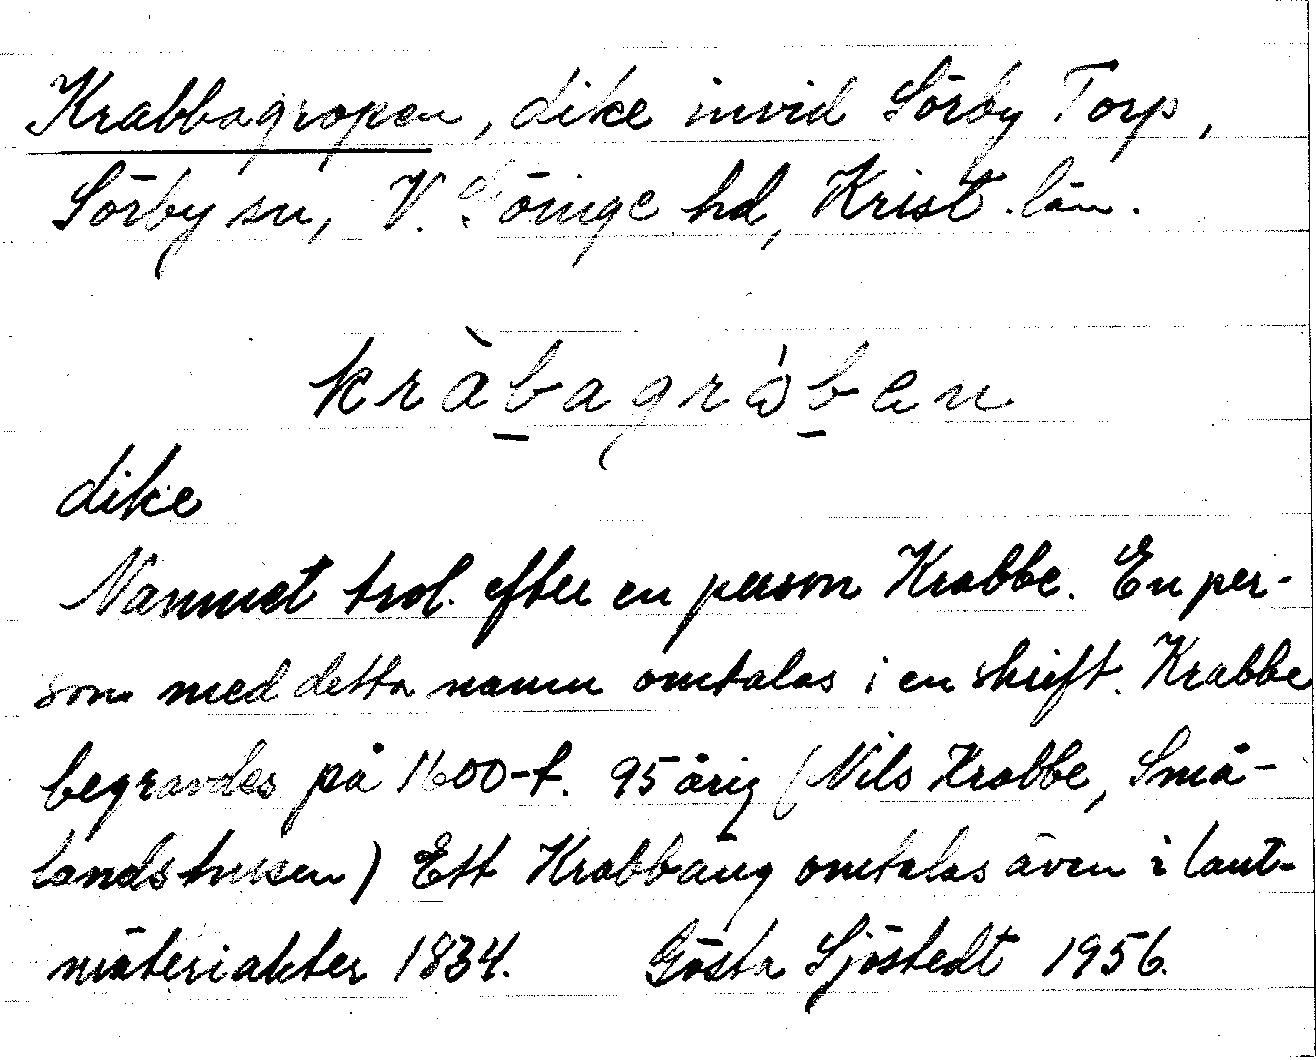 Krabbagropen, dike invid Sörby Torp,
Sörby sn, V. Göinge hd, Krist. län.
kràbagròben
dike
Namnet trol. efter en person Krabbe. En per-
son med detta namn omtalas i en skrift. Krabbe
begravdes på 1600-t. 95 årig (Nils Krabbe, Små-
landshusen) Ett Krabbäng omtalas även i lant-
mäteriakter 1834. Gösta Sjöstedt 1956.